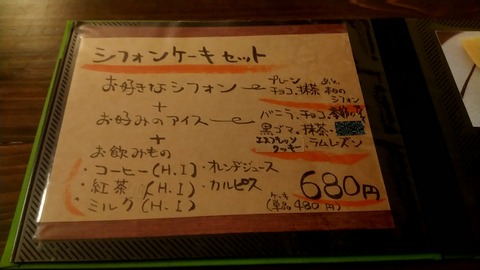 シフォンケーキセット
お好きなシフォン
プレーン
チョコ、抹茶
シフォン
+
お好みのアイス
バニラ、チョコ、
黒ゴマ、抹茶、
エスプレッソ
クッキー、ラムレーズン
+
お飲みもの
・コーヒー(H.I)・オレンヂジュース
・紅茶(H.I)・カルピス
・ミルク(H.I)
680円
ケーキ
(単品480円)